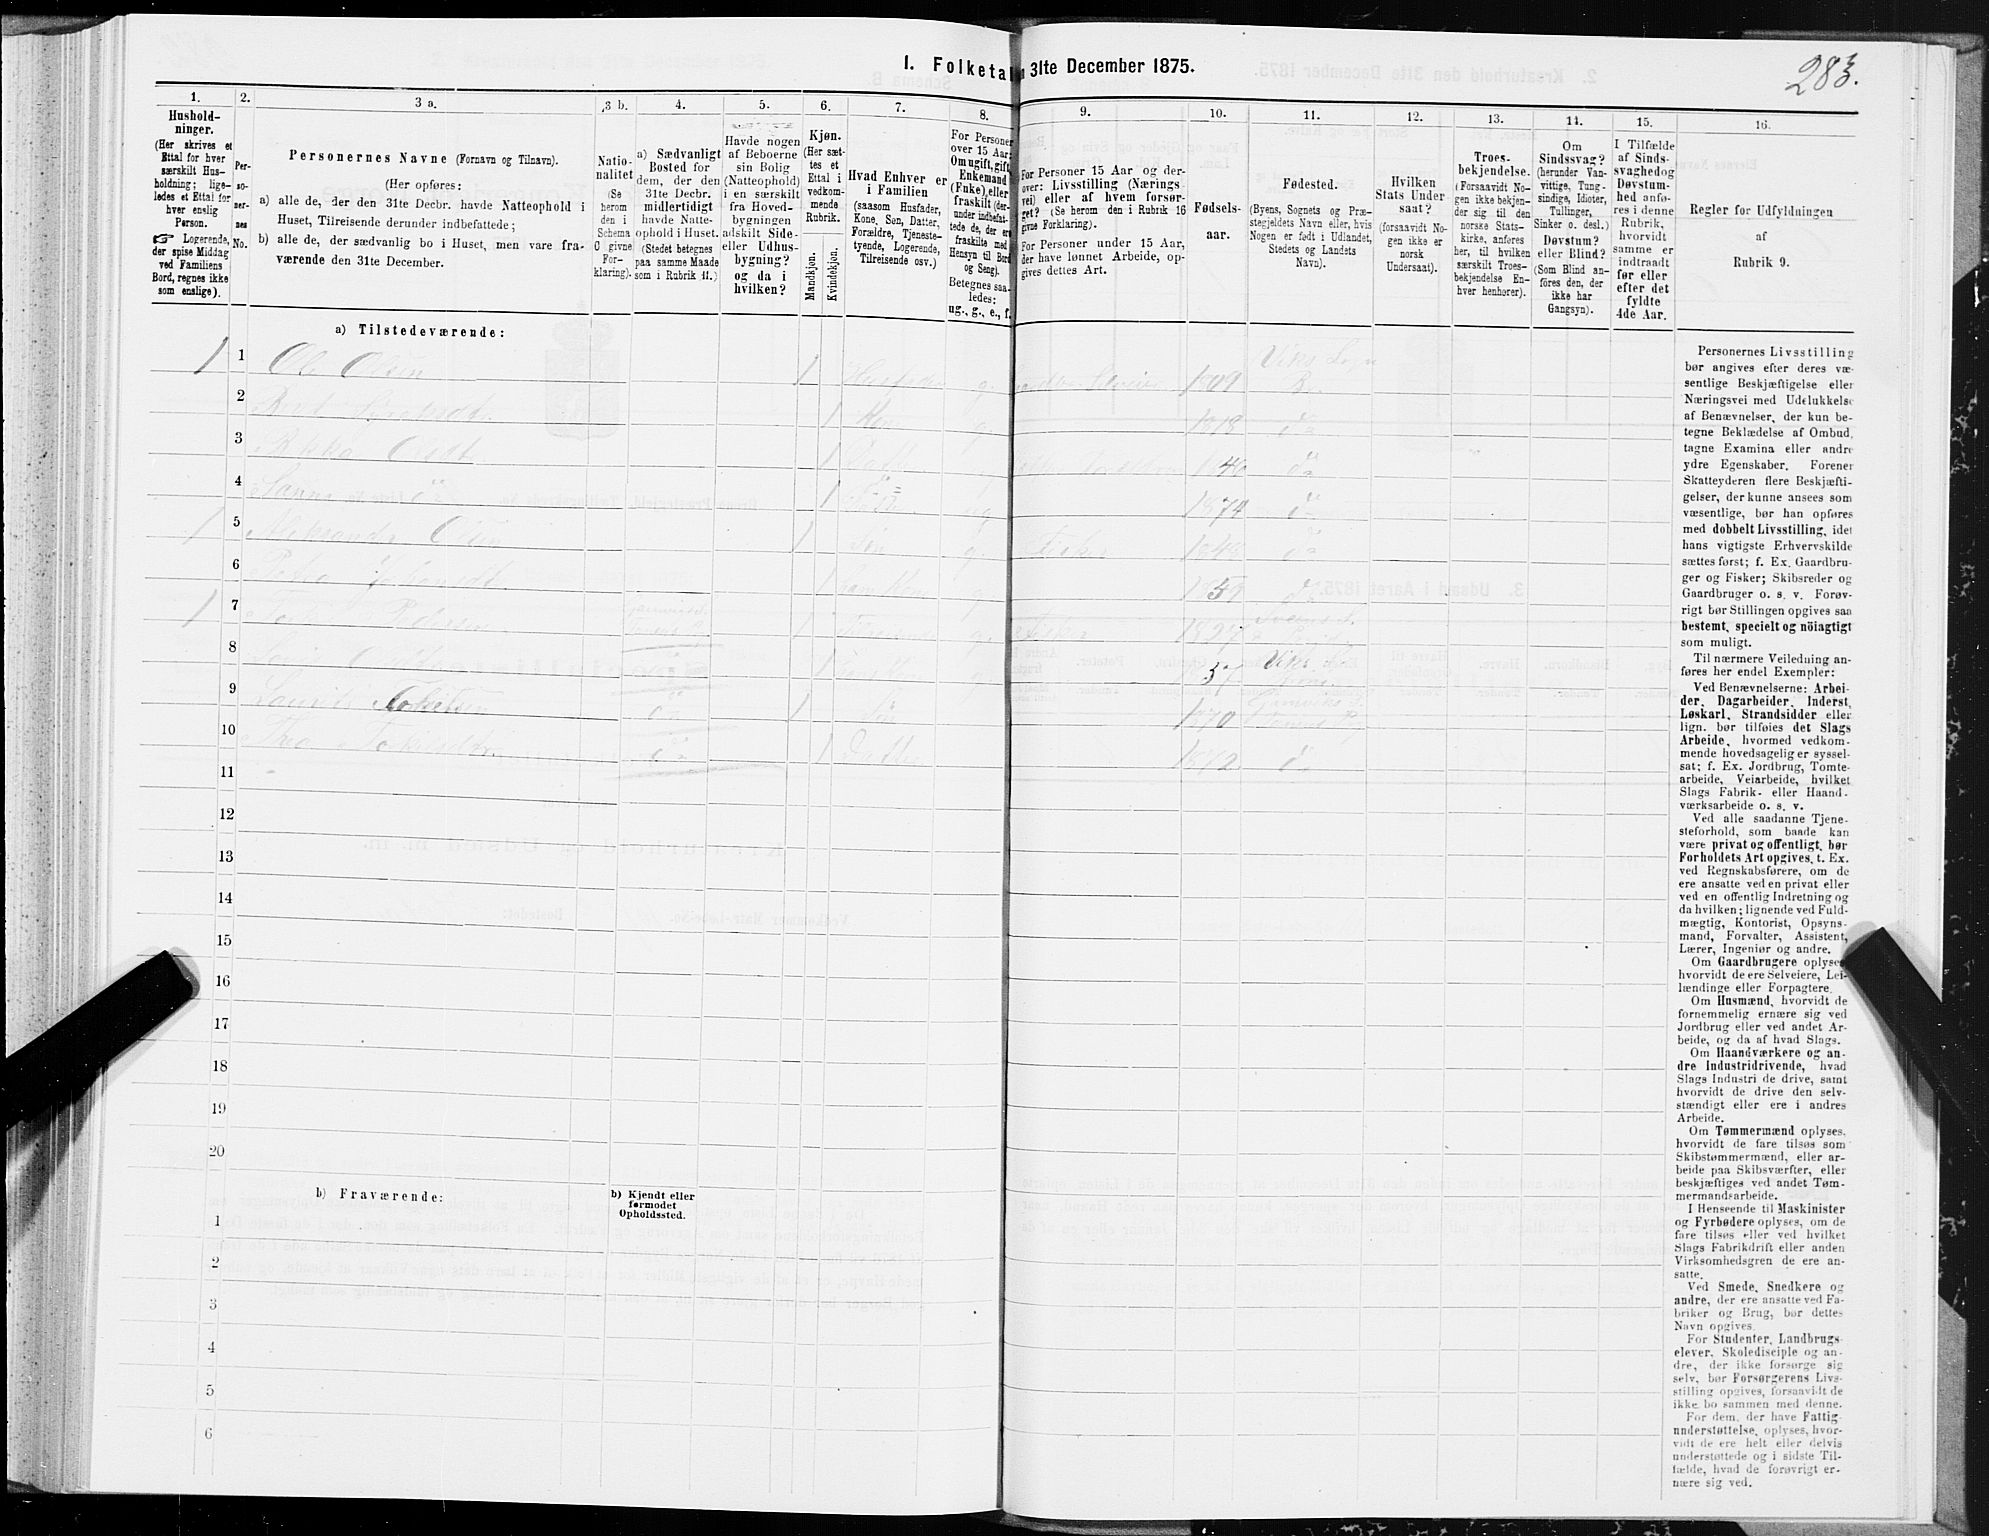 I. Folketal
31te December 1875.
283.
1.
Hushold-
ninger.
(Her skrives et
Ettal for hver
særskilt Hus-
holdning; lige-
ledes et Ettal for
hver enslig
Person.
☞ Logerende,
der spise Middag
ved Familiens
Bord, regnes ikke
som enslige).
2.
Per-
so-
ner-
nes
No.
3 a.
Personernes Navne (Fornavn og Tilnavn).
(Her opføres:
a) alle de, der den 31te Decbr. havde Natteophold i
Huset, Tilreisende derunder indbefattede;
b) alle de, der sædvanlig bo i Huset, men vare fra-
værende den 31te December.
3 b.
Natio-
nalitet
(Se
herom
den i
Schema
C givne
For-
klaring).
4.
a) Sædvanligt
Bosted for
dem, der den
31te Decbr.
midlertidigt
havde Natte-
ophold i Huset.
(Stedet betegnes
paa samme Maade
som i Rubrik 11.)
5.
Havde nogen
af Beboerne
sin Bolig
(Natteophold)
i en særskilt
fra Hoved-
bygningen
adskilt Side-
eller Udhus-
bygning?
og da i
hvilken?
6.
Kjøn.
(Her sæt-
tes et
Ettal i
vedkom-
mende
Rubrik.
Mandkjøn.
Kvindekjøn.
7.
Hvad Enhver er
i Familien
(saasom Husfader,
Kone, Søn, Datter,
Forældre, Tjeneste-
tyende, Logerende,
Tilreisende osv.)
8.
For Personer
over 15 Aar:
Om ugift, gift,
Enkemand
(Enke), eller
fraskilt (der-
under indbefat-
tede de, der ere
fraskilte med
Hensyn til Bord
og Seng).
Betegnes saa-
ledes:
ug., g., e., f.
9.
For Personer 15 Aar og der-
over: Livsstilling (Nærings-
vei) eller af hvem forsør-
get? (Se herom den i Rubrik 16
givne Forklaring).
For Personer under 15 Aar,
der have lønnet Arbeide, op-
gives dettes Art.
10.
Fødsels-
aar.
11.
Fødested.
(Byens, Sognets og Præ-
stegjeldets Navn eller, hvis
Nogen er født i Udlandet,
Stedets og Landets
Navn).
12.
Hvilken
Stats Under
saat?
(forsaavidt No-
gen ikke er
norsk
Undersaat).
13.
Troes-
bekjendelse.
(Forsaavidt No-
gen ikke bekjen-
der sig til den
norske Stats-
kirke, anføres
her, til hvilken
særskilt Troes-
bekjendelse En-
hver henhører).
14.
Om
Sindssvag?
(herunder Van-
vittige, Tung-
sindige, Idioter,
Tullinger,
Sinker o. desl.)
Døvstum?
eller Blind?
(Som Blind an-
føres den, der
ikke har
Gangsyn).
15.
I Tilfælde
af Sinds-
svaghed og
Døvstum-
hed anfø-
res i denne
Rubrik,
hvorvidt
samme er
indtraadt
før eller
efter det
fyldte
4de Aar.
16.
Regler for Udfyldningen
af
Rubrik 9.
a) Tilstedeværende:
1 1 Ole Olsen 1 g. 1809 Viks Sogn
2 1 Kone g. 1818 do
3 Olsdt 1 do
4 do 1 1874 do
1 5 Olsen 1 Søn g. Fisker do
6 1 g.
1 7 Pedersen 1 g. Fisker
8 1 57 Viks
9 1 Søn 1870
10 1 Datter 1872 do
11
12
13
14
15
16
17
18
19
20
b) Fraværende:
b) Kjendt eller
formodet
Opholdssted.
1
2
3
4
5
6
Personernes Livsstilling
bør angives efter deres væ-
sentlige Beskjæftigelse eller
Næringsvei med Udelukkelse
af Benævnelser, der kun be-
tegne Beklædelse af Ombud,
tagne Examina eller andre
ydre Egenskaber. Forener
Skatteyderen flere Beskjæfti-
gelser, der kunne ansees som
væsentlige, bør han opføres
med dobbelt Livsstilling, idet
hans vigtigste Erhvervskilde
sættes først; f. Ex. Gaardbru-
ger og Fisker; Skibsreder og
Gaardbruger o. s. v. Forøv-
rigt bør Stillingen opgives saa
bestemt, specielt og nöiagtigt
som muligt.
Til nærmere Veiledning an-
føres her endel Exempler:
Ved Benævnelserne: Arbei-
der, Dagarbeider, Inderst,
Løskarl, Strandsidder eller
lign. bør tilføies det Slags
Arbeide, hvormed vedkom-
mende hovedsagelig er syssel-
sat; f. Ex. Jordbrug, Tomte-
arbeide, Veiarbeide, hvilket
Slags Fabrik- eller Haand-
værksarbeide o. s. v.
Ved alle saadanne Tjene-
steforhold, som baade kan
være privat og offentligt, bør
Forholdets Art opgives, t. Ex.
ved Regnskabsførere, om de
ere ansatte ved en privat eller
ved en offentlig Indretning og
da hvilken; lignende ved Fuld-
mægtig, Kontorist, Opsyns-
mand, Forvalter, Assistent,
Lærer, Ingeniør og andre.
Om Gaardbrugere oplyses,
hvorvidt de ere Selveiere, Lei-
lændinge eller Forpagtere.
Om Husmænd, hvorvidt de
fornemmelig ernære sig ved
Jordbrug eller ved andet Ar-
beide, og da af hvad Slags.
Om Haandværkere og an-
dre Industridrivende, hvad
Slags Industri de drive, samt
hvorvidt de drive den selv-
stændigt eller ere i andres
Arbeide.
Om Tømmermænd oplyses,
hvorvidt de fare tilsøs som
Skibstømmermænd, eller ar-
beide paa Skibsværfter, eller
beskjæftiges ved andet Tøm-
mermandsarbeide.
I Henseende til Maskinister
og Fyrbødere oplyses, om de
fare tilsøs eller ved hvilket
Slags Fabrikdrift eller anden
Virksomhedsgren de ere an-
satte.
Ved Smede, Snedkere og
andre, der ere ansatte ved Fa-
briker og Brug, bør dettes
Navn opgives.
For Studenter, Landbrugs-
elever, Skoledisciple og an-
dre, der ikke forsørge sig
selv, bør Forsørgerens Livs-
stilling opgives, forsaavidt de
ikke bo sammen med denne.
For dem, der have Fattig-
understøttelse, oplyses, hvor-
vidt de ere helt eller delvis
understøttede og i sidste Til-
fælde, hvad de forøvrigt er-
nære sig ved.